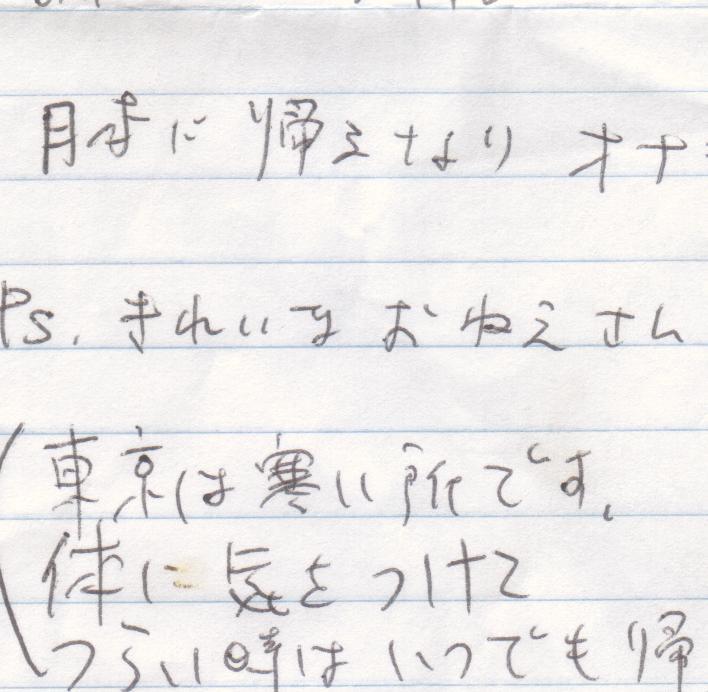 日本に帰るなり オナ
PS. きれいな おねえさん
東京は寒い所です。
体に気をつけて
つらい時はいつでも帰